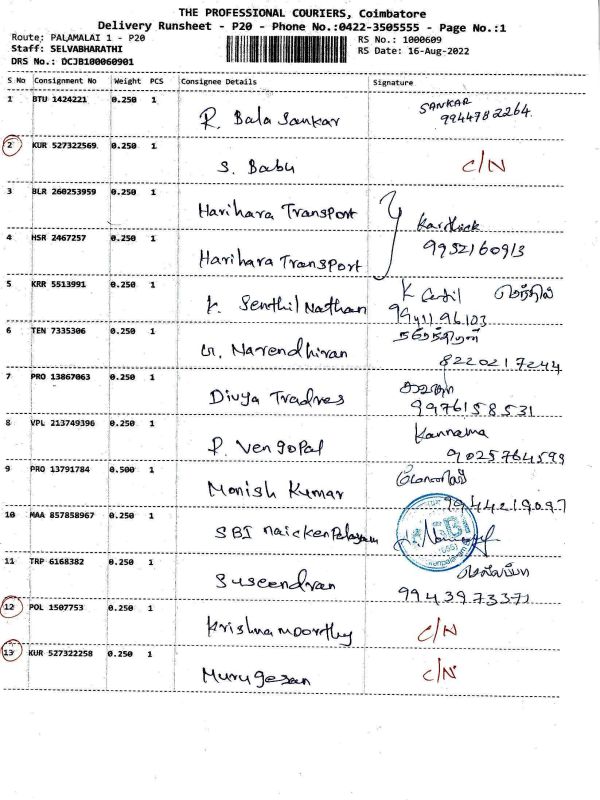 THE PROFESSIONAL COURIERS, Coimbatore
Delivery Runsheet - P20 - Phone No.:0422-3505555 - Page No.:1
Route: PALAMALAI 1 - P20 RS No.: 1000609
Staff: SELVABHARATHI RS Date: 16-Aug-2022
DRS No.: DCJB100060901
S No Consignment No Weight PCS Consignee Details Signature
1 BTU 1424221 0.250 1 R. Bala Sankar SANKAR
9944782264
2 KUR 527322569 0.250 1 S. Babu C/N
3 BLR 260253959 0.250 1 Harihara Transport Karthick
4 HSR 2467257 0.250 1 Harihara Transport 9952160913
5 KRR 5513991 0.250 1 K. Senthil Nathan K செந்தில்
9941196103
6 TEN 7335306 0.250 1 Narendhiran
8220217244
7 PRO 13867063 0.250 1 Divya Tradres
9976158531
8 VPL 213749396 0.250 1 P. Vengopal Kannama
9025764599
9 PRO 13791784 0.500 1 Monish Kumar
9944219097
10 MAA 857858967 0.250 1 SBI Naickenpalayam SBI
11 TRP 6168382 0.250 1 Suseendran
9943973371
12 POL 1507753 0.250 1 Krishnamoorthy C/N
13 KUR 527322258 0.250 1 Murugesan C/N